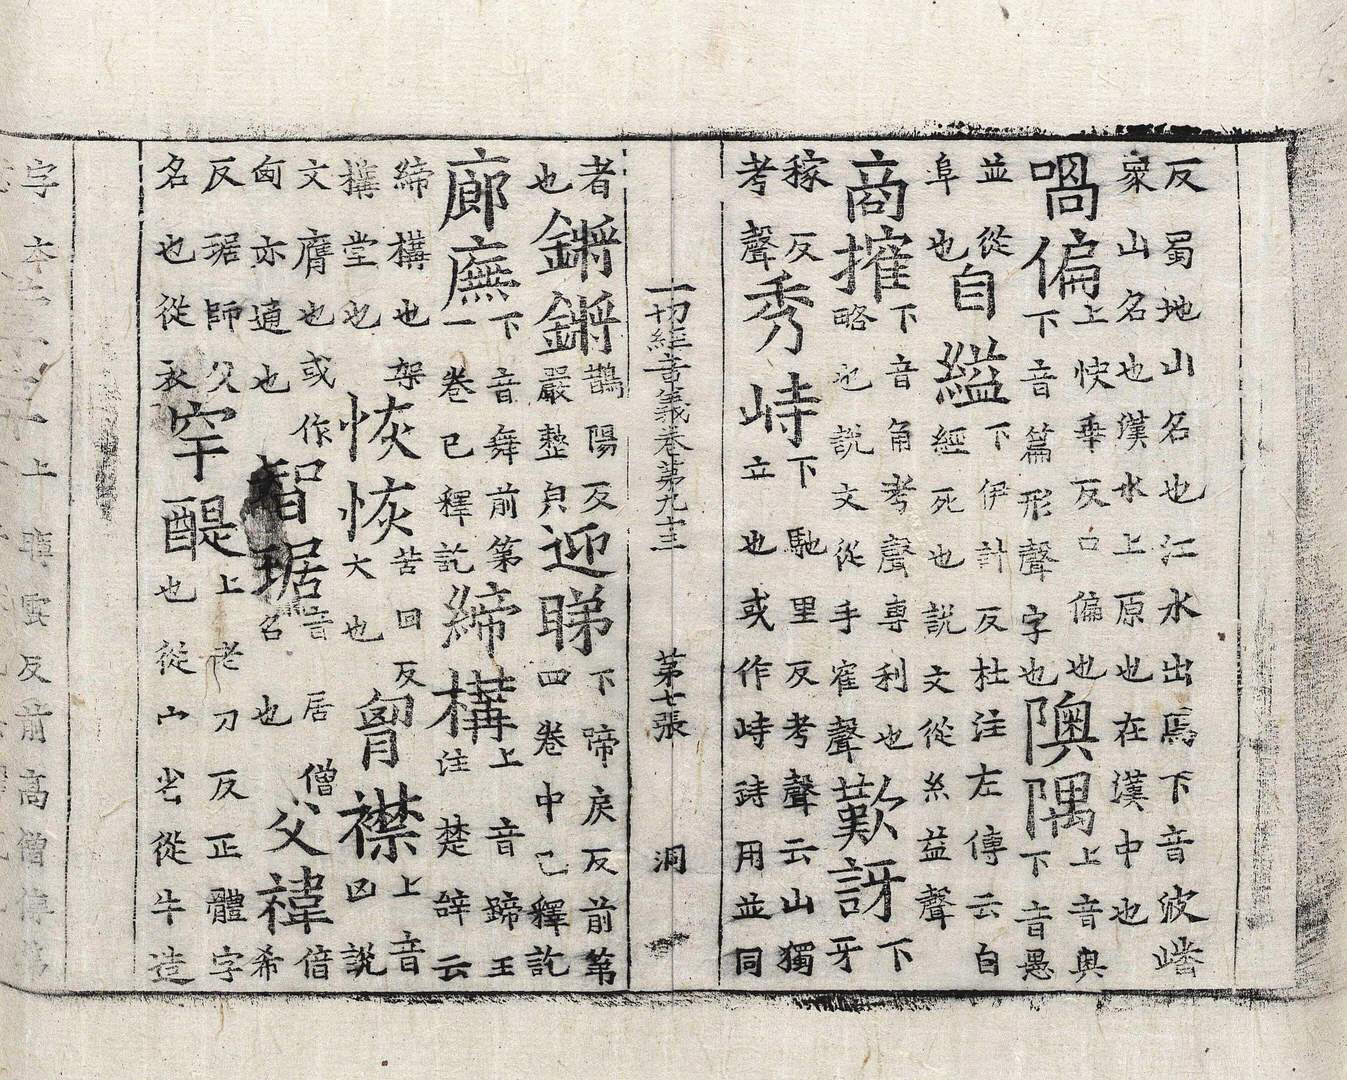 反蜀地山名也江水出焉下音波嶓
衆山名也漢水上原也在漢中也
喎偏上快乖反口偏也下音篇形聲字也隩隅上音奥下音愚
並從阜也自縊下伊計反杜注左傳云自經死也說文從糸益聲
商搉下音角考聲專利也略也說文從手隺聲歎訝下牙
稼反考聲秀峙下馳里反考聲云山獨立也或作峙跱用並同
一切經音義卷第九十三 第七張 洞
者也鏘鏘鵲陽反嚴整皃迎睇下啼戾反前第四卷中已釋訖
廊廡下音舞前第一卷已釋訖締構上音蹄王注楚辭云
締構也架構堂也恢恢苦回反大也胷襟上音凶說
文膺也或作匈亦通也智琚音居僧名也父褘倍希
反琚師父名也從衣窂醍上老刀反正體字也從牛造
字上雲反前高僧傳第